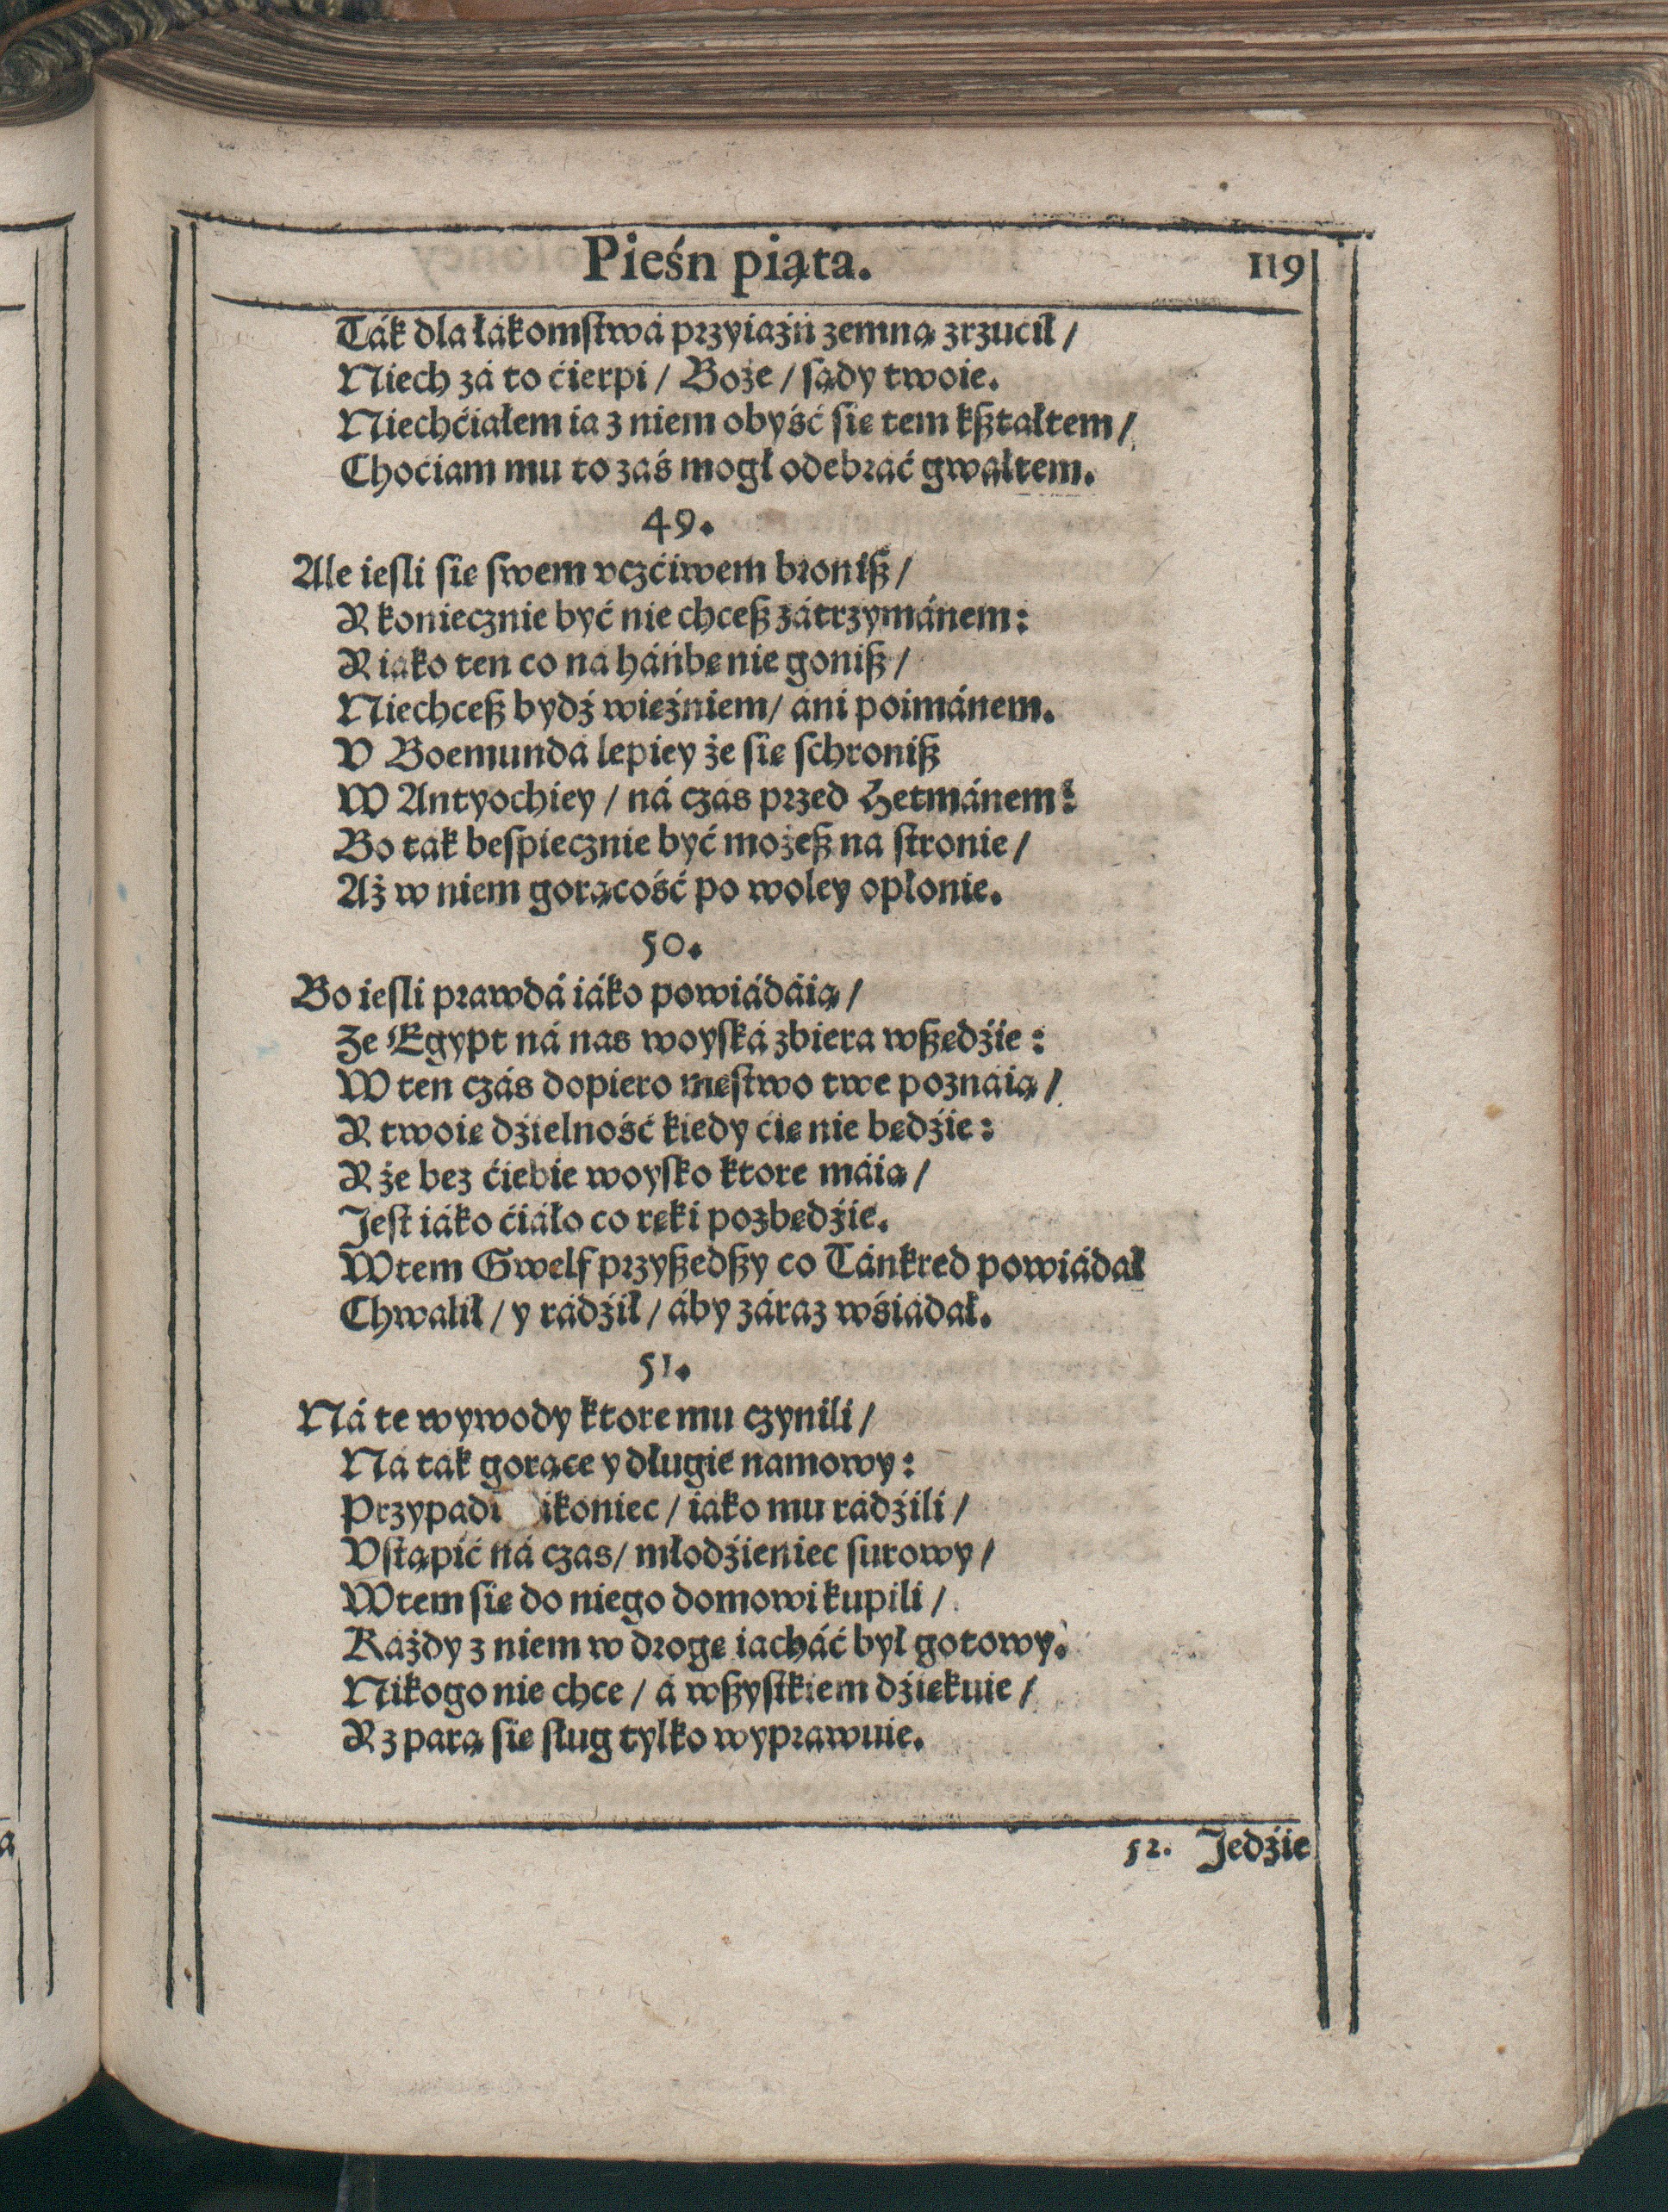 Pieśń piąta. 119
Ták dla łákomstwá przyiaźń zemną zrzucił /
Niech zá to ćierpi / Boże / sądy twoie.
Niechćiałem ia z niem obyść się tem kształtem /
Choćiam mu to zaś mogł odebrać gwałtem.
49.
Ale iesli się swem vczćiwem bronisz /
Y koniecznie być nie chcesz zátrzymánem:
Y iako ten co na háńbę nie gonisz /
Niechcesz bydź więźniem / áni poimánem.
V Boemundá lepiey że się schronisz
W Antyochiey / ná czás przed Hetmánem:
Bo tak bespiecznie być możesz na stronie /
Aż w niem gorącość po woley opłonie.
50.
Bo iesli prawdá iáko powiádáią /
Ze Egypt ná nas woyská zbiera wszędźie:
W ten czás dopiero męstwo twe poznáią /
Y twoię dźielność kiedy ćię nie będźie:
Y że bez ćiebie woysko ktore máią /
Jest iáko ćiáło co ręki pozbędźie.
Wtem Gwelf przyszedszy co Tánkred powiádał
Chwalił / y rádźił / áby záraz wśiádał.
51.
Ná te wywody ktore mu czynili /
Ná tak gorące y długie namowy:
Przypadł ikoniec / iako mu rádźili /
Vstąpić ná czas / młodźieniec surowy /
Wtem się do niego domowi kupili /
Każdy z niem w drogę iacháć był gotowy.
Nikogo nie chce / á wszystkiem dźiękuie /
Y z parą się sług tylko wyprawuie.
52. Jedźie